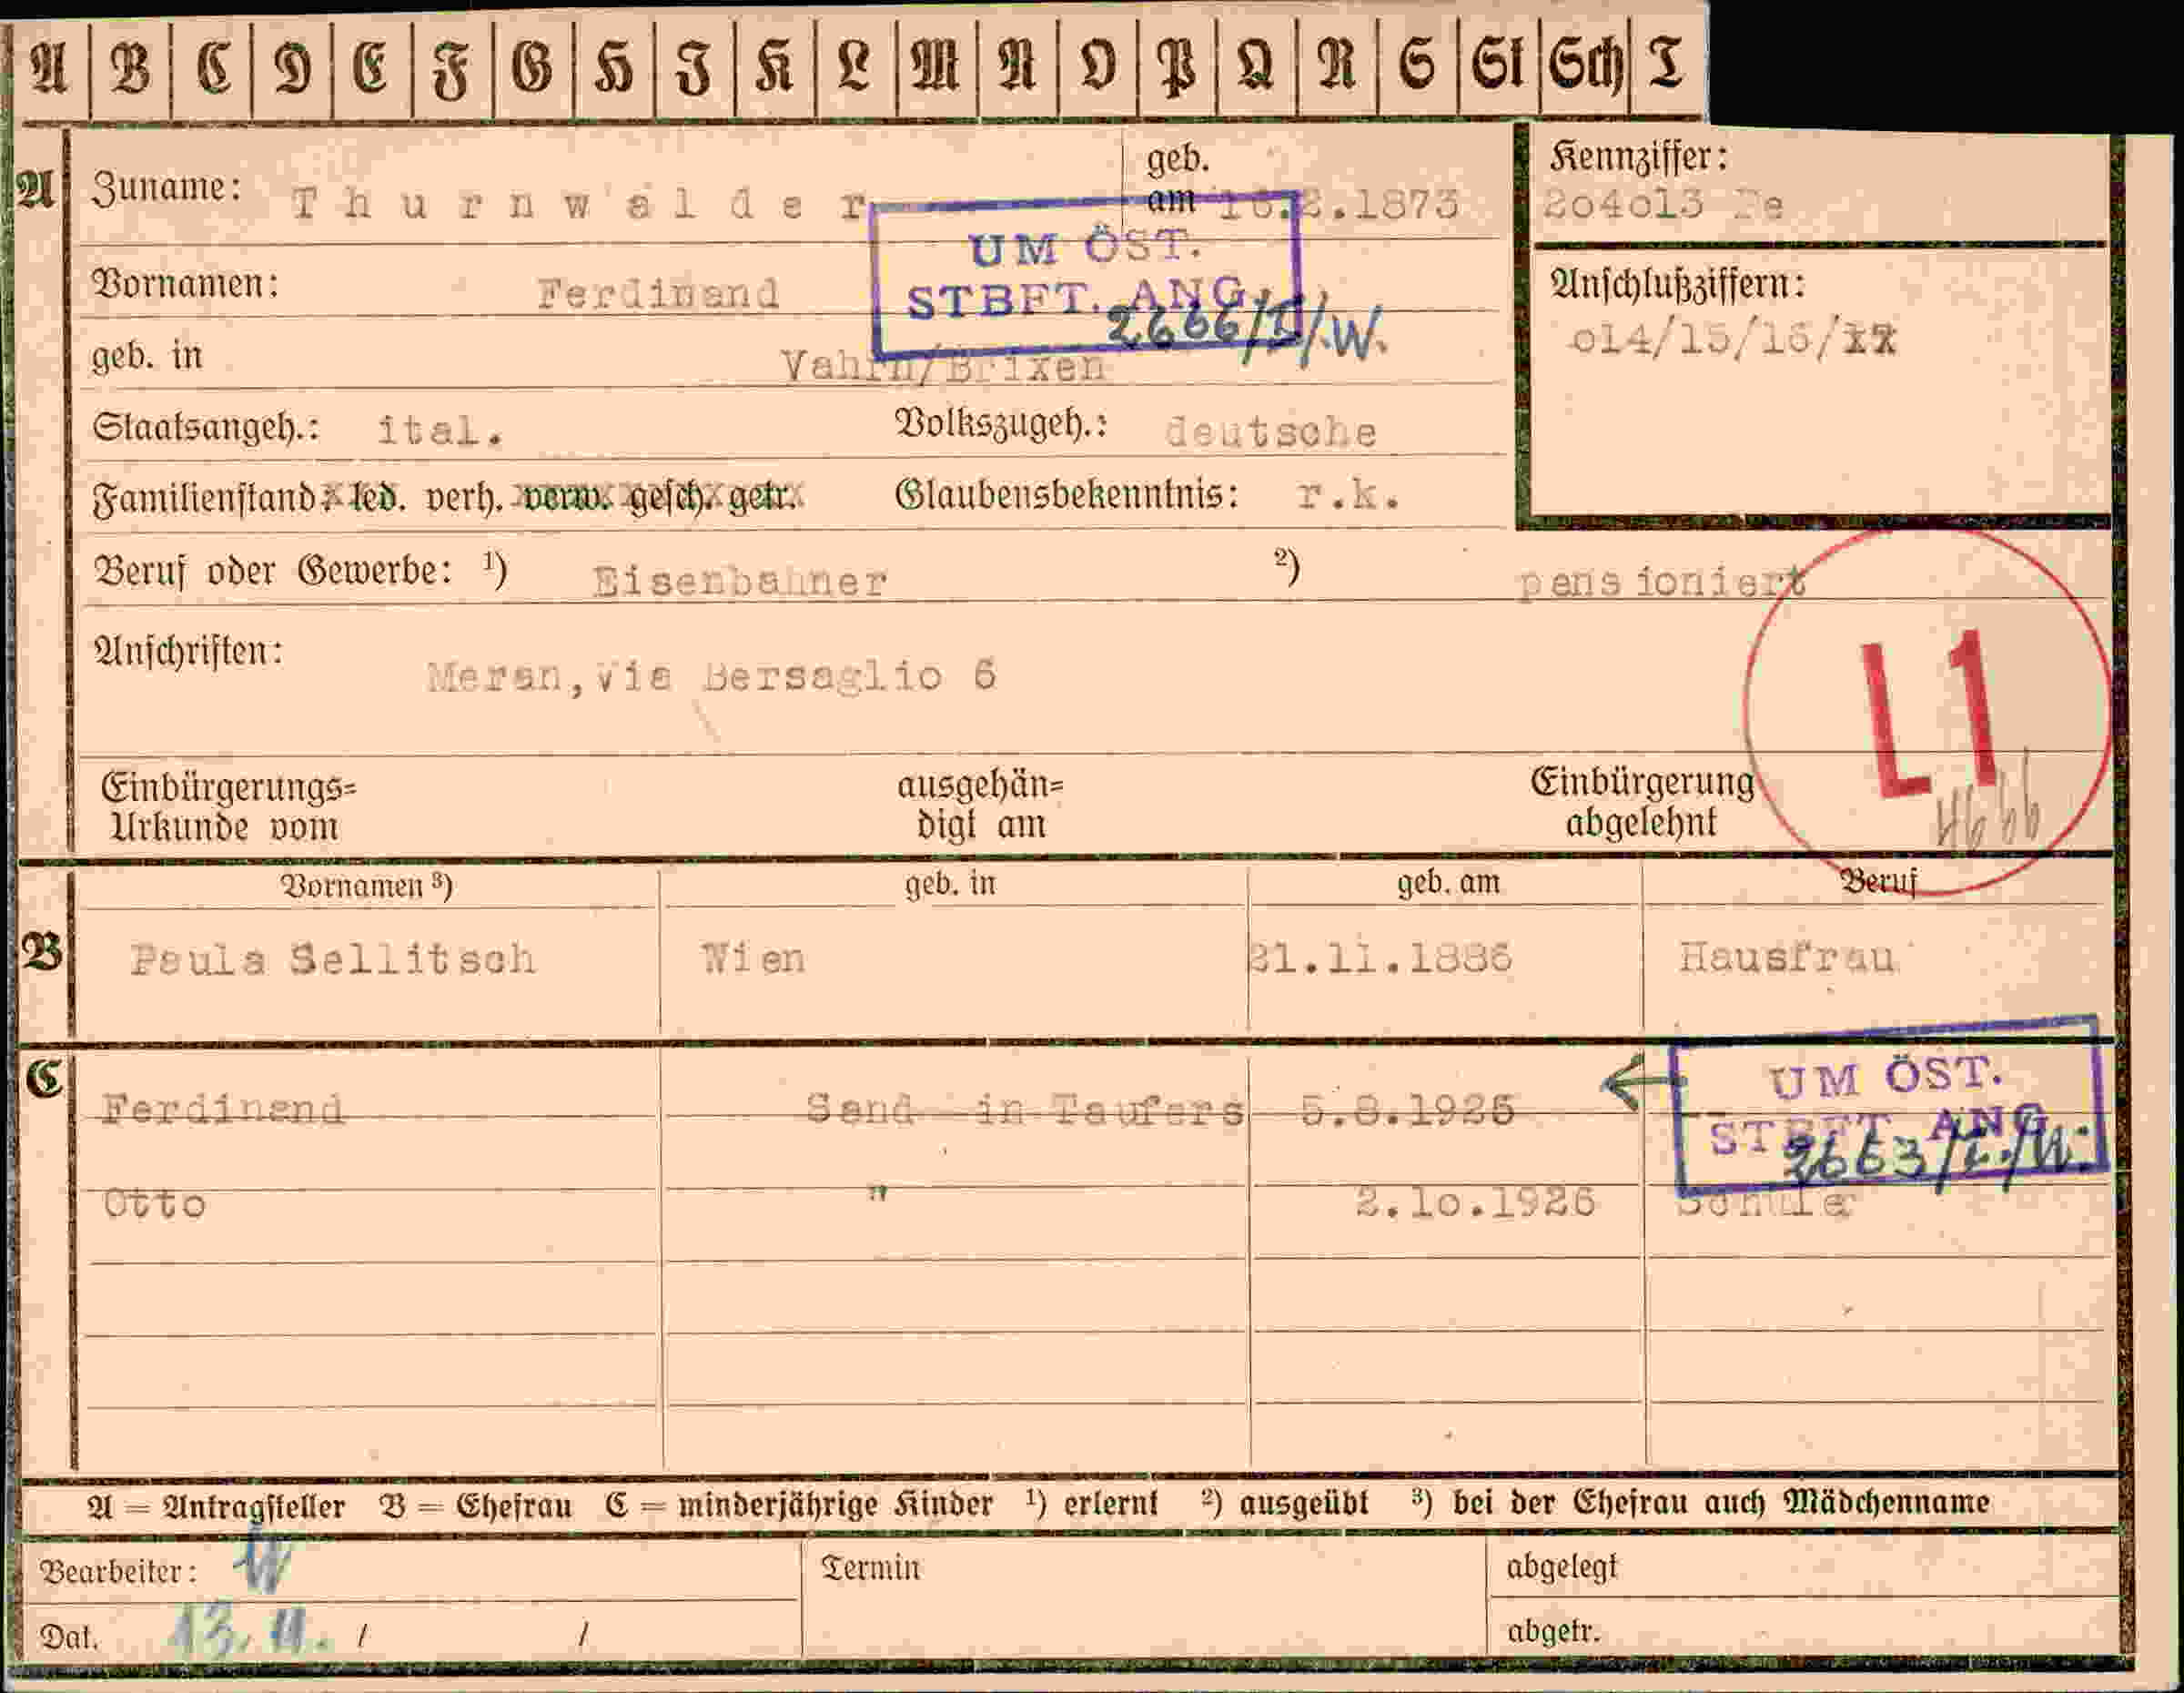 A B C D E F G H I K L M N O P Q R S St Sch T
A
Zuname: Thurnwalder
geb. am 16.2.1873
Kennziffer:
204013 Pe
Vornamen: Ferdinand
UM ÖST.
STBFT. ANG.
2666/I/.W.
Anschlußziffern:
014/15/16/
geb. in Vahrn/Brixen
Staatsangeh.: ital. Volkszugeh.: deutsche
Familienstand: led. verh. verw. gesch. getr. Glaubensbekenntnis: r.k.
Beruf oder Gewerbe: ¹) Eisenbahner ²) pensioniert
Anschriften: Meran,via Bersaglio 6
L1
Einbürgerungs=
Urkunde vom
ausgehän=
digt am
Einbürgerung
abgelehnt
4666
Vornamen ³) geb. in geb. am Beruf
B
Paula Sellitsch Wien 21.11.1886 Hausfrau
C
Ferdinand Sand in Taufers 5.8.1925
UM ÖST.
STBFT ANG
2663/I./W.
Otto " 2.10.1926 Schule
A = Antragsteller B = Ehefrau C = minderjährige Kinder ¹) erlernt ²) ausgeübt ³) bei der Ehefrau auch Mädchenname
Bearbeiter: W Termin abgelegt
Dat. 13. 11. / / abgetr.